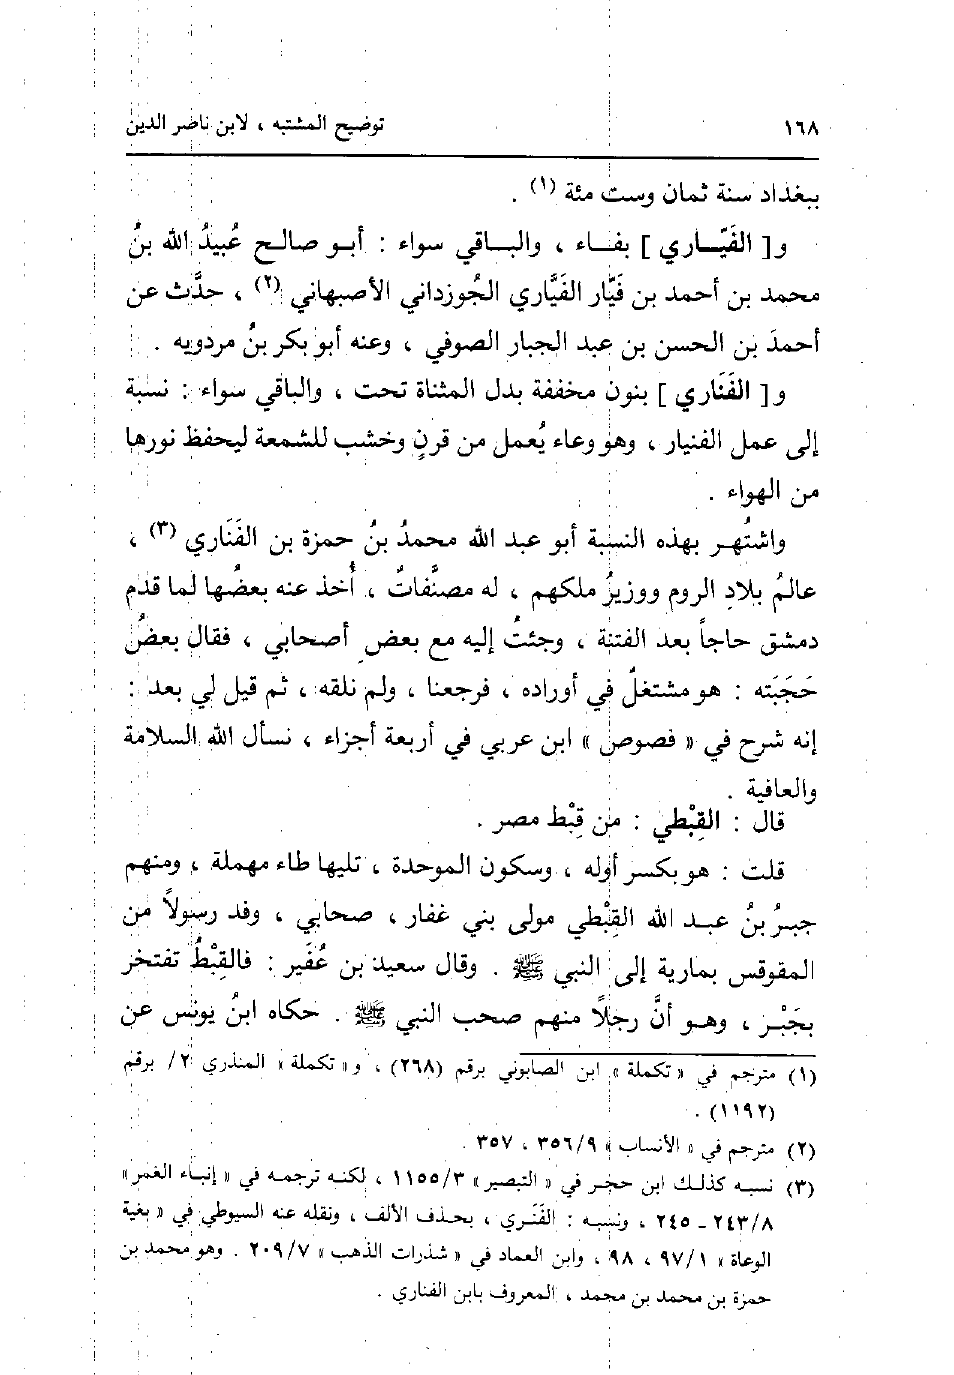 ١٦٨ توضيح المشتبه ، لابن ناصر الدين
ببغداد سنة ثمان وست مئة (١) .
و[ الفَيّاري ] بفاء ، والباقي سواء : أبو صالح عُبيدُ الله بنُ
محمد بن أحمد بن فَيَّار الفَيَّاري الجُوزداني الأصبهاني (٢) ، حدَّث عن
أحمدَ بن الحسن بن عبد الجبار الصوفي ، وعنه أبو بكر بنُ مردويه .
و[ الفَنَاري ] بنون مخففة بدل المثناة تحت ، والباقي سواء : نسبة
إلى عمل الفنيار ، وهو وعاء يُعمل من قرنٍ وخشب للشمعة ليحفظ نورها
من الهواء .
واشتُهر بهذه النسبة أبو عبد الله محمدُ بنُ حمزة بن الفَنَاري (٣) ،
عالمُ بلادِ الروم ووزيرُ ملكهم ، له مصنَّفاتٌ ، أُخذ عنه بعضُها لما قدم
دمشق حاجاً بعد الفتنة ، وجئتُ إليه مع بعض أصحابي ، فقال بعضُ
حَجَبَته : هو مشتغلٌ في أوراده ، فرجعنا ، ولم نلقه ، ثم قيل لي بعد :
إنه شرح في « فصوص » ابن عربي في أربعة أجزاء ، نسأل الله السلامة
والعافية .
قال : القِبْطي : من قِبْط مصر .
قلت : هو بكسر أوله ، وسكون الموحدة ، تليها طاء مهملة ، ومنهم
جبرُ بنُ عبد الله القِبْطي مولى بني غفار ، صحابي ، وفد رسولاً من
المقوقس بمارية إلى النبي ﷺ . وقال سعيد بن عُفَير : فالقِبْطُ تفتخر
بجَبْر ، وهو أنَّ رجلاً منهم صحب النبي ﷺ . حكاه ابنُ يونس عن
(١) مترجم في « تكملة » ابن الصابوني برقم (٢٦٨) ، و« تكملة » المنذري ٢/ برقم
(١١٩٢) .
(٢) مترجم في « الأنساب » ٣٥٦/٩ ، ٣٥٧ .
(٣) نسبه كذلك ابن حجر في « التبصير » ١١٥٥/٣ ، لكنه ترجمه في « إنباء الغمر »
٢٤٣/٨ ـ ٢٤٥ ، ونسبه : الفَنَري ، بحذف الألف ، ونقله عنه السيوطي في « بغية
الوعاة » ٩٧/١ ، ٩٨ ، وابن العماد في « شذرات الذهب » ٢٠٩/٧ . وهو محمد بن
حمزة بن محمد بن محمد ، المعروف بابن الفناري .